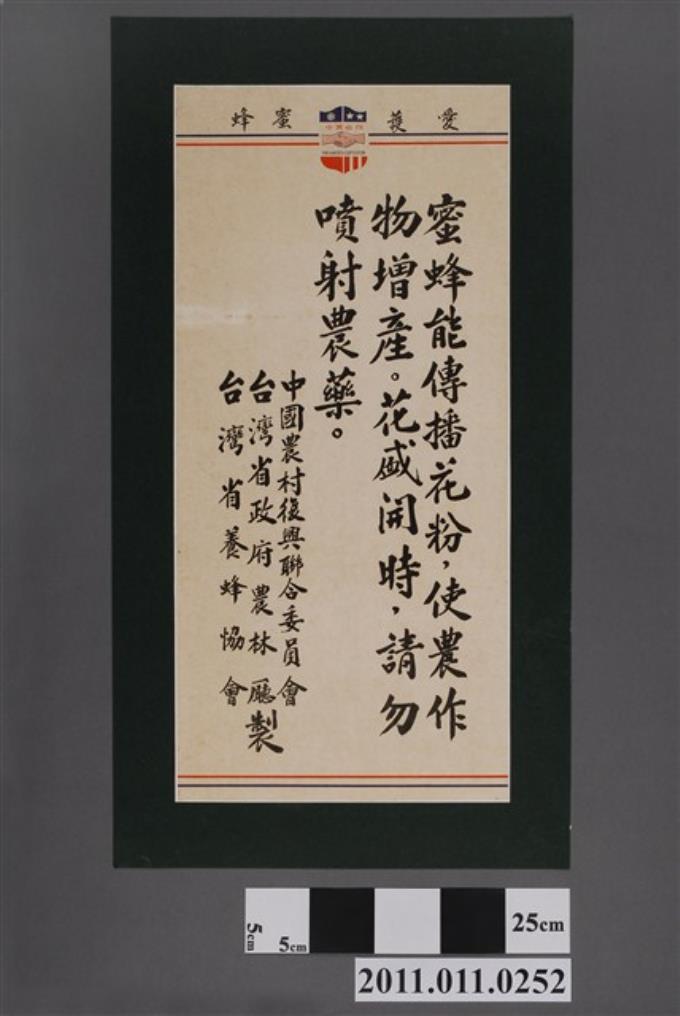 愛護蜜蜂
中美合作
蜜蜂能傳播花粉，使農作
物增產。花盛開時，請勿
噴射農藥。
中國農村復興聯合委員會
台灣省政府農林廳
台灣省養蜂協會
製
5cm
5cm
25cm
2011.011.0252